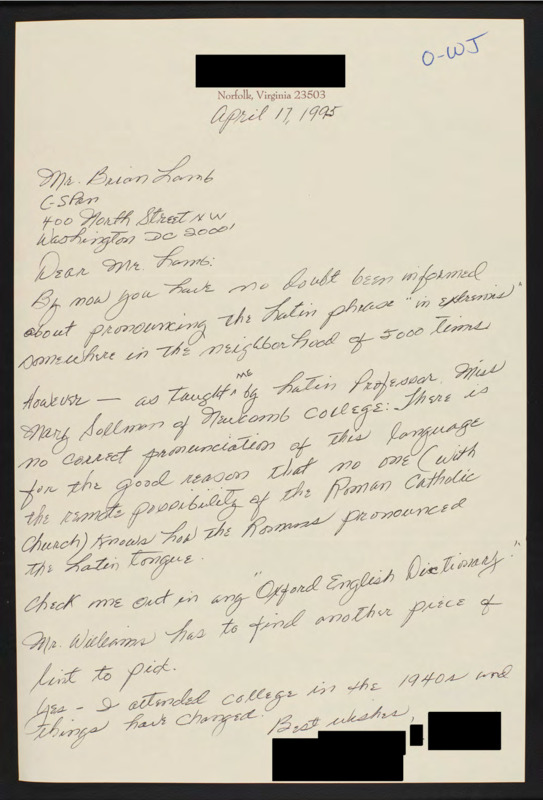 O-WJ
Norfolk, Virginia 23503
April 17, 1995
Mr. Brian Lamb
C-SPan
400 North Street NW
Washington DC 20001
Dear Mr. Lamb:
By now you have no doubt been informed
about pronouncing the Latin phrase "in extremis"
somewhere in the neighborhood of 5000 times
However — as taught me by Latin Professor. Miss
Mary Sollman of Newcomb College: There is
no correct pronunciation of this language
for the good reason that no one (with
the remote possibility of the Roman Catholic
Church) knows how the Romans pronounced
the Latin tongue.
Check me out in any "Oxford English Dictionary."
Mr. Williams has to find another piece of
lint to pick.
Yes - I attended college in the 1940s and
things have changed.
Best wishes,